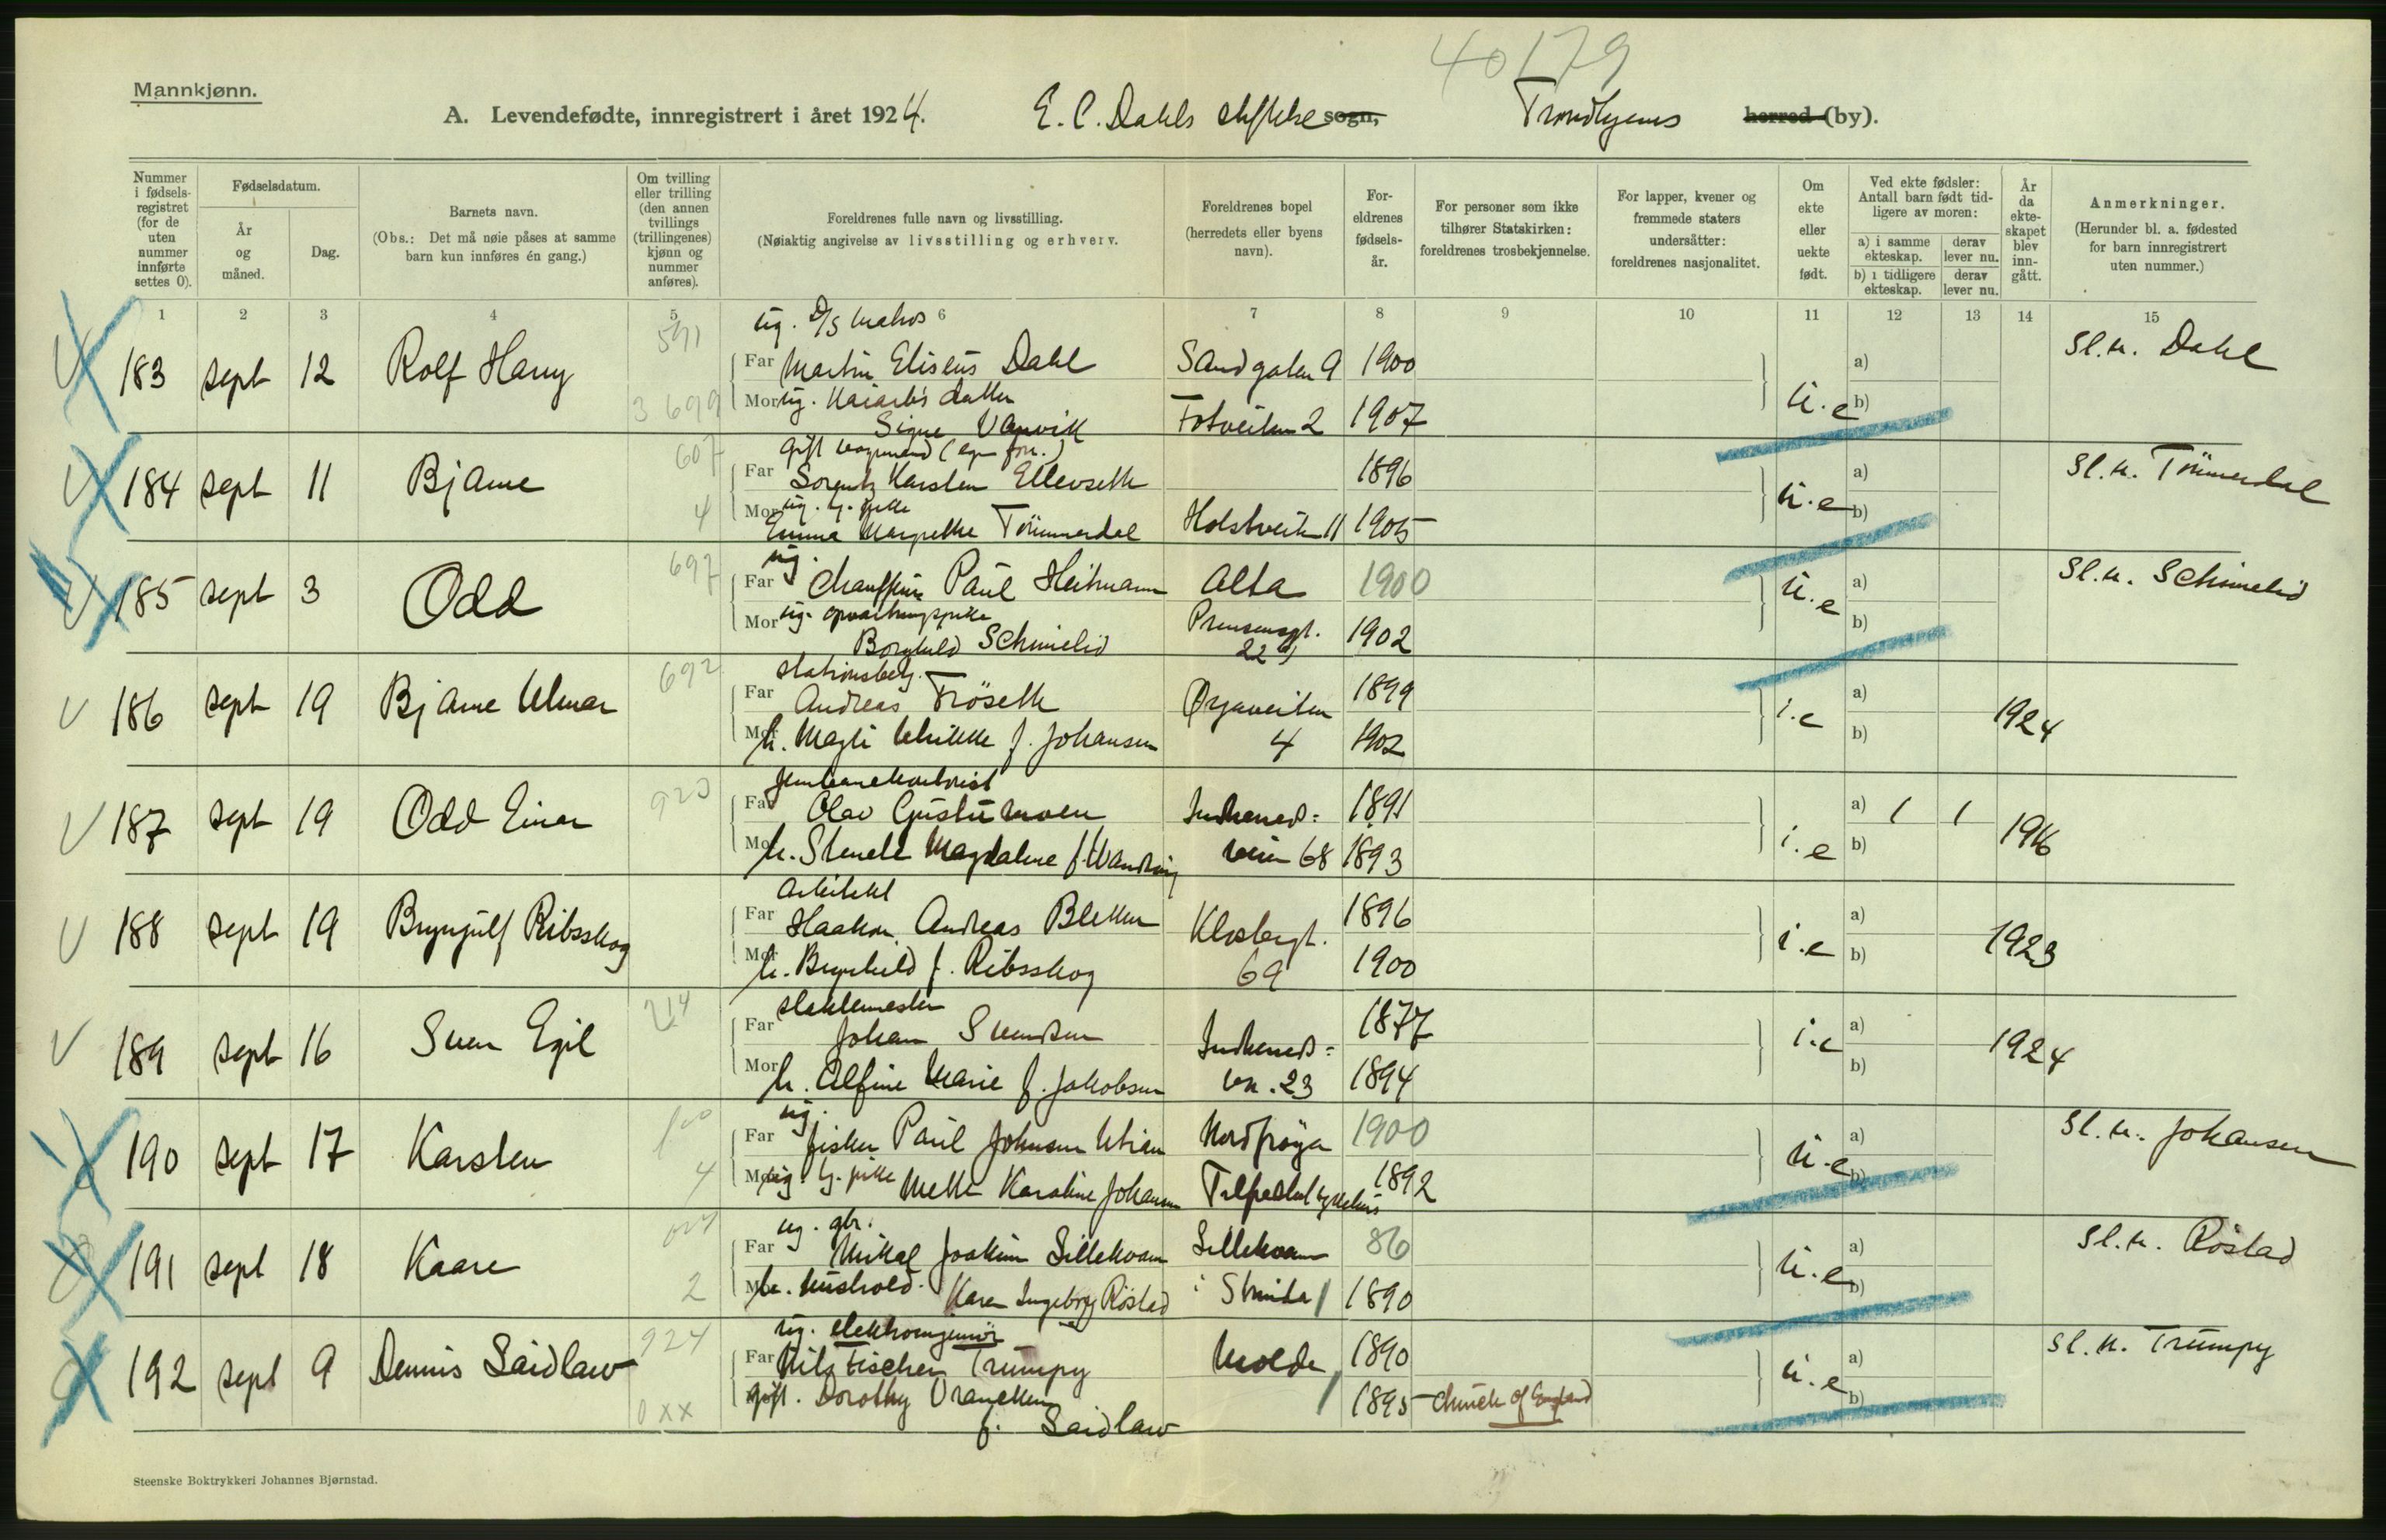 40179
Mannkjønn.
A. Levendefødte, innregistrert i året 1924. E. C. Dahls stiftelse sogn, Trondhjems herred (by).
Nummer i fødselsregistret (for de uten nummer innførte settes 0).
Fødselsdatum.
År og måned.
Dag.
Barnets navn.
(Obs.: Det må nøie påses at samme barn kun innføres én gang.)
Om tvilling eller trilling (den annen tvillings (trillingenes) kjønn og nummer anføres).
Foreldrenes fulle navn og livsstilling.
(Nøiaktig angivelse av livsstilling og erhverv.
Foreldrenes bopel (herredets eller byens navn).
Foreldrenes fødselsår.
For personer som ikke tilhører Statskirken: foreldrenes trosbekjennelse.
For lapper, kvener og fremmede staters undersåtter: foreldrenes nasjonalitet.
Om ekte eller uekte født.
Ved ekte fødsler: Antall barn født tidligere av moren:
a) i samme ekteskap.
derav lever nu.
b) i tidligere ekteskap.
derav lever nu.
År da ekteskapet blev inngått.
Anmerkninger.
(Herunder bl. a. fødested for barn innregistrert uten nummer.)
1 2 3 4 5 6 7 8 9 10 11 12 13 14 15
591 ug. D/S Matros
183 sept 12 Rolf Harry Far Martin Eliseus Dahl Sandgaten 9 1900 u.e a) b) Sl.n. Dahl
3 699 Mor ug. datter
Signe Vanvik Fotveiten 2 1907
607 gift
184 sept 11 Bjarne Far Lorentz Karsten Ellevseth 1896 u.e a) b) Sl.n. Tömmerdal
4 Mor ug. tj. pike
Emma Margrethe Tömmerdal Holstveiten 11 1905
697 ug.
185 sept 3 Odd Far Chauffeur Paul Heitmann Alta 1900 u.e a) b) Sl.n. Schmelid
Mor ug. opvartningspike
Borghild Schmelid Prinsensgt. 22 1902
692 stationsbetj.
186 sept 19 Bjarne Far Andreas Fröseth Ørjaveiten 4 1899 i.e a) b) 1924
Mor h. f. Johansen 1902
923 jernbanekontorist
187 sept 19 Odd Einar Far Olav Gustu Moen Innherreds= 1891 i.e a) 1 1 b) 1916
Mor h. Magdalene f. veien 68 1893
Arkitekt
188 sept 19 Brynjulf Ribsskog Far Haakon Andreas Blekken Klosbergt. 69 1896 i.e a) b) 1923
Mor h. Brynhild f. Ribsskog 1900
214 slaktemester
189 sept 16 Sven Egil Far Johan Svendsen Innherreds= 1877 i.e a) b) 1924
Mor h. Alfine Marie f. Jakobsen vn. 23 1894
ug.
190 sept 17 Karsten Far fisker Paul Johnsen Nordfrøya 1900 u.e a) b) Sl.n. Johansen
4 Mor ug. tj. pike Mette Karoline Johansen 1892
ug. gbr.
191 sept 18 Kaare Far Mikal Joakim Lillekvam Lillekvam 86 u.e a) b) Sl.n. Röstad
2 Mor h. hushold. Karen Ingeborg Röstad i Strinda 1890
924 ug. elektroingeniör
192 sept 9 Dennis Laidlaw Far Nils Fischer Trumpy Molde 1890 u.e a) b) Sl.n. Trumpy
0xx Mor gift. Dorothy 1895 Church of England
f. Laidlaw
Steenske Boktrykkeri Johannes Bjørnstad.